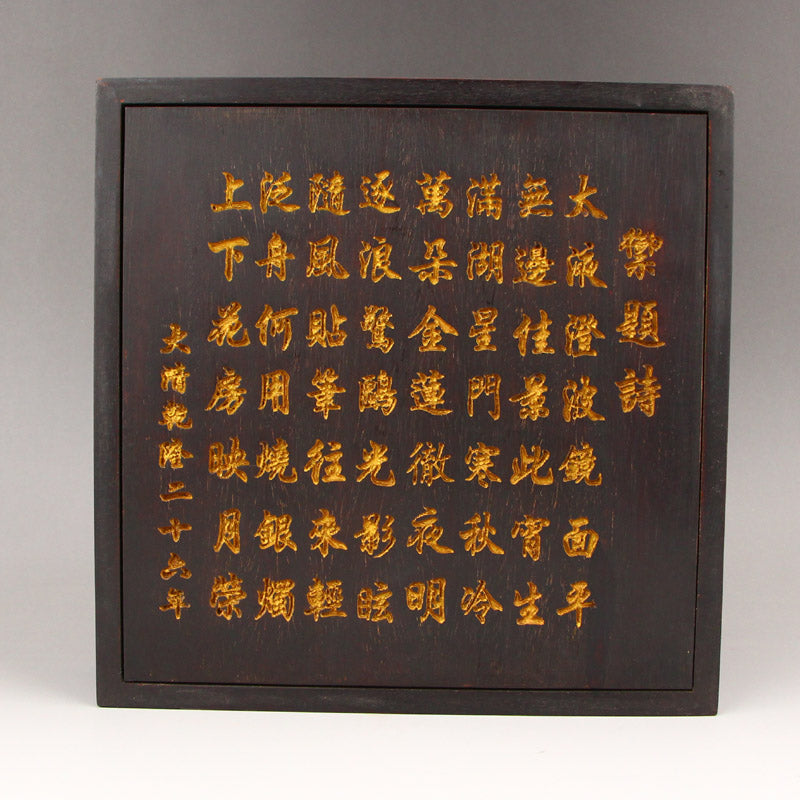 禦題詩
太液澄波鏡面平
無邊佳景此宵生
滿湖星門寒秋冷
萬朵金蓮徹夜明
逐浪驚鷗光影眩
隨風貼筆往來輕
泛舟何用燒銀燭
上下花房映月榮
大清乾隆二十六年